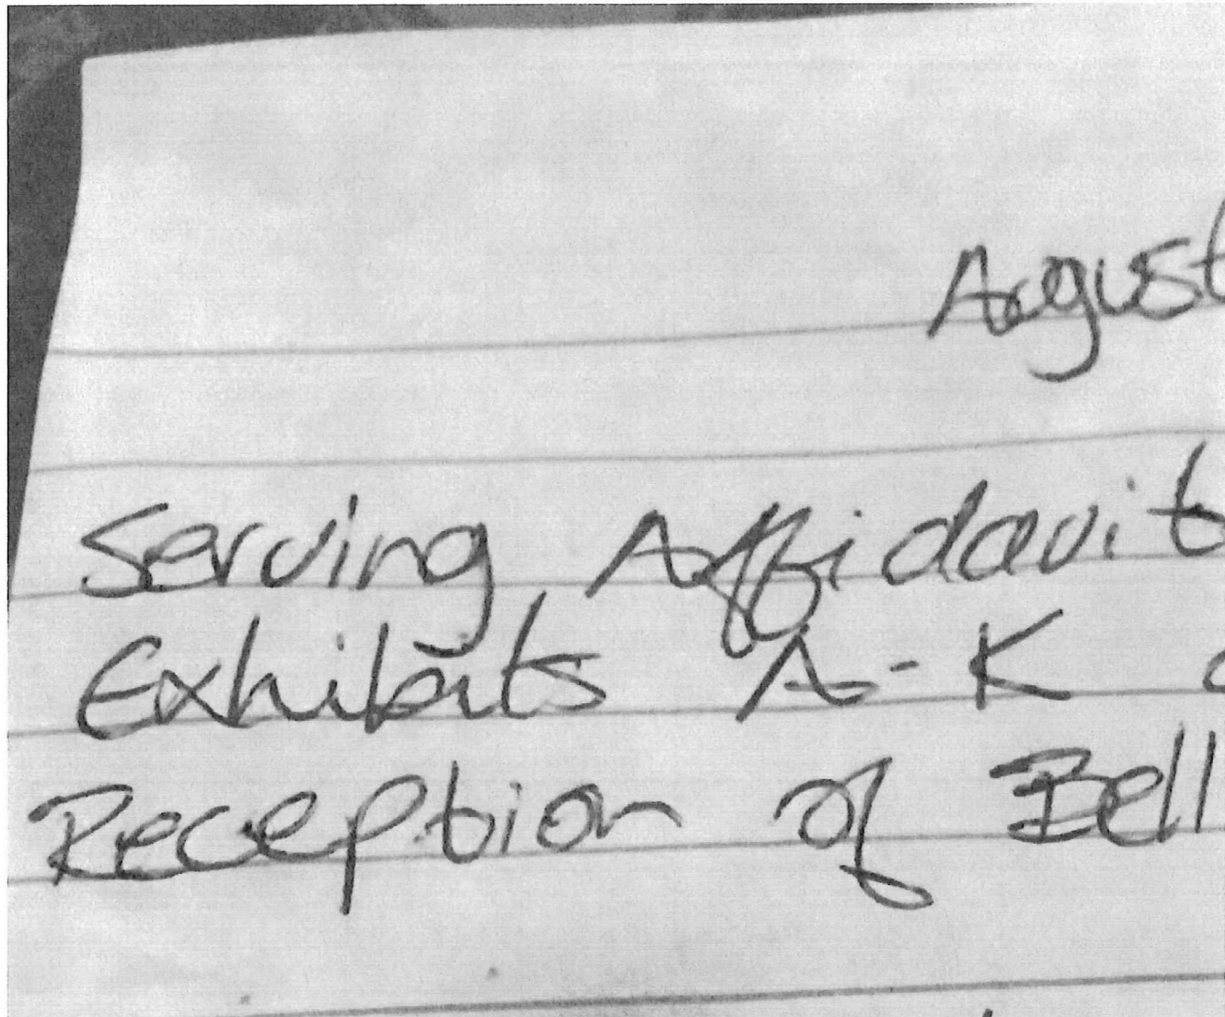 August
Serving Affidavit
Exhibits A-K
Reception of Bell